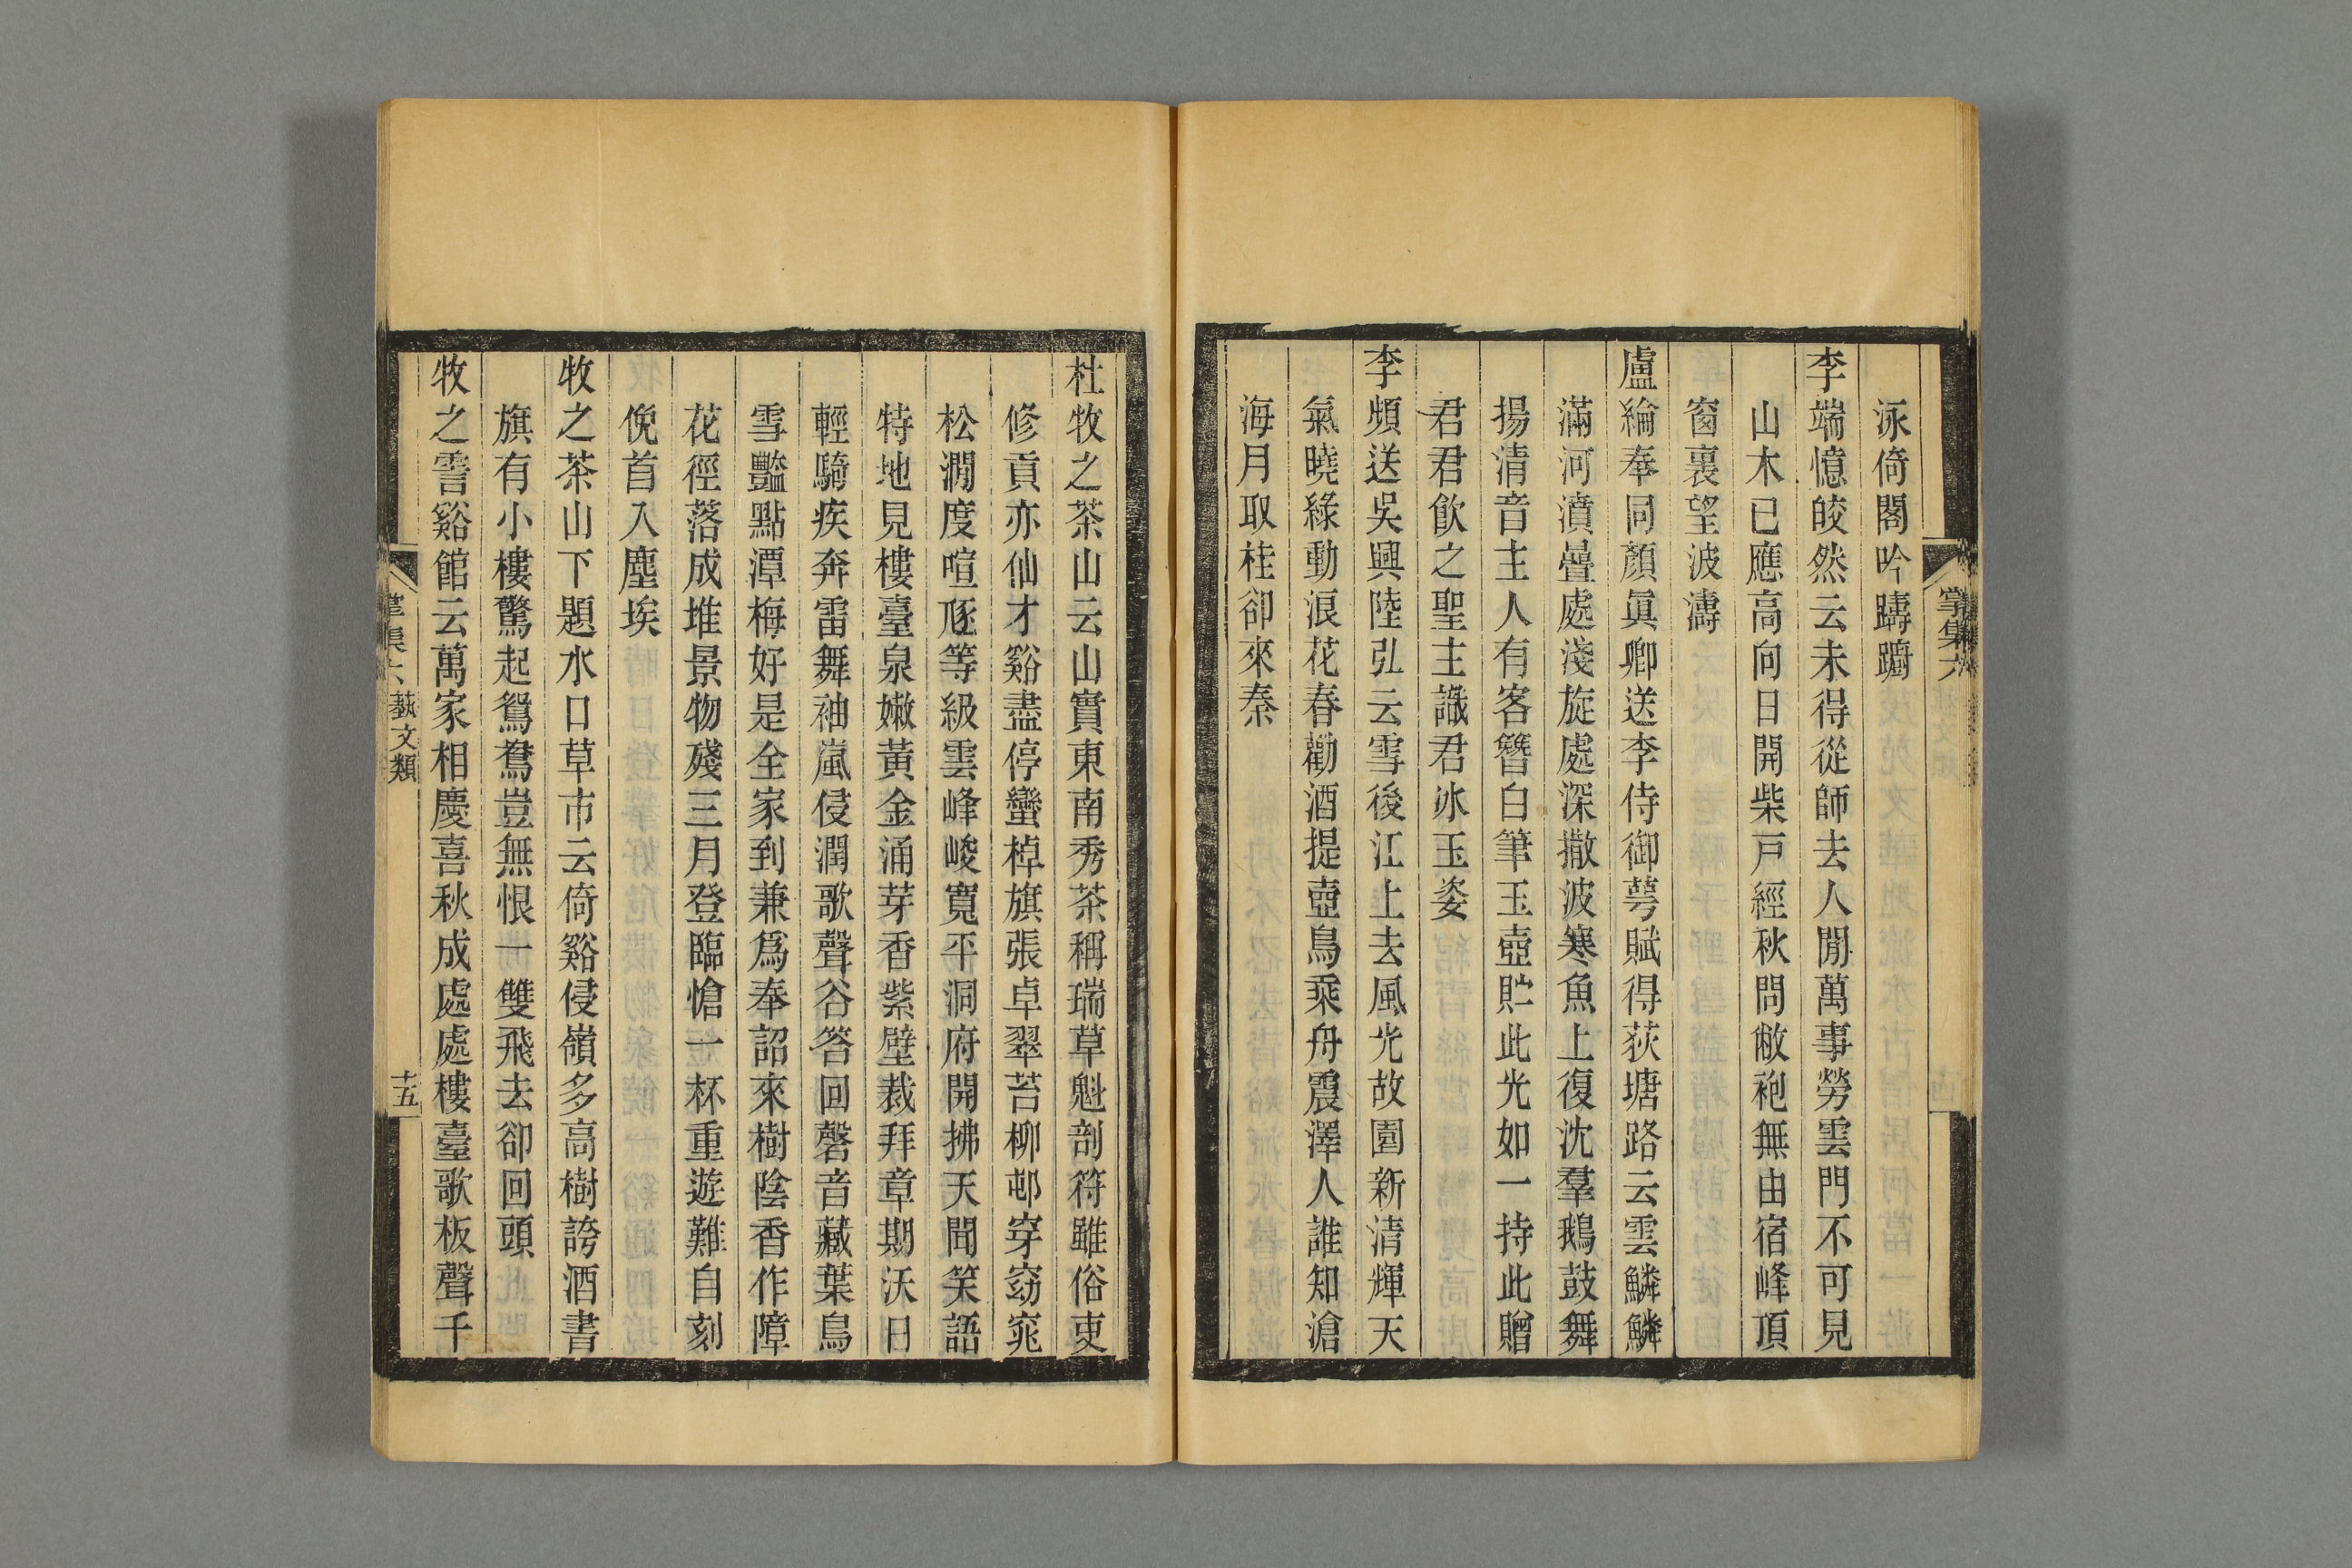 掌集六
泳倚閣吟躊躕
李端憶皎然云未得從師去人閒萬事勞雲門不可見
山木已應高向日開柴戸經秋問敝袍無由宿峰頂
窗裏望波濤
盧綸奉同顏眞卿送李侍御萼賦得荻塘路云雲鱗鱗
滿河濆曡處淺旋處深撒波寒魚上復沈羣鵝鼓舞
揚清音主人有客簪白筆玉壺貯此光如一持此贈
君君飮之聖主識君冰玉姿
李頻送吳興陸弘云雪後江上去風光故園新清輝天
氣曉綠動浪花春勸酒提壺鳥乘舟震澤人誰知滄
海月取桂卻來秦
杜牧之茶山云山實東南秀茶稱瑞草魁剖符雖俗吏
修貢亦仙才谿盡停蠻棹旗張卓翠苔柳邨穿窈窕
松澗度喧豗等級雲峰峻寬平洞府開拂天聞笑語
特地見樓臺泉嫩黃金涌芽香紫壁裁拜章期沃日
輕騎疾奔雷舞袖嵐侵潤歌聲谷答回磬音藏葉鳥
雪豔點潭梅好是全家到兼爲奉詔來樹陰香作障
花徑落成堆景物殘三月登臨愴一杯重遊難自刻
俛首入塵埃
牧之茶山下題水口草市云倚谿侵嶺多高樹誇酒書
旗有小樓驚起鴛鴦豈無恨一雙飛去卻回頭
牧之霅谿館云萬家相慶喜秋成處處樓臺歌板聲千
掌集六 藝文類 十五